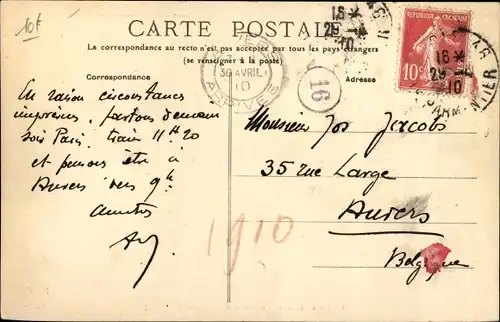 10f
CARTE POSTALE
La correspondance au recto n'est pas acceptée par tous les pays étrangers
(se renseigner à la poste)
Correspondance
En raison circonstances
imprévues, partons demain
soir Paris, train 11h20
et pensons être à
Anvers vers 9h.
Amitiés
Monsieur Jos Jacobs
35 rue Large
Anvers
Belgique
1910
16
30 AVRIL
10
16
29 -4
10
REPUBLIQUE FRANÇAISE
10c
16
29
10